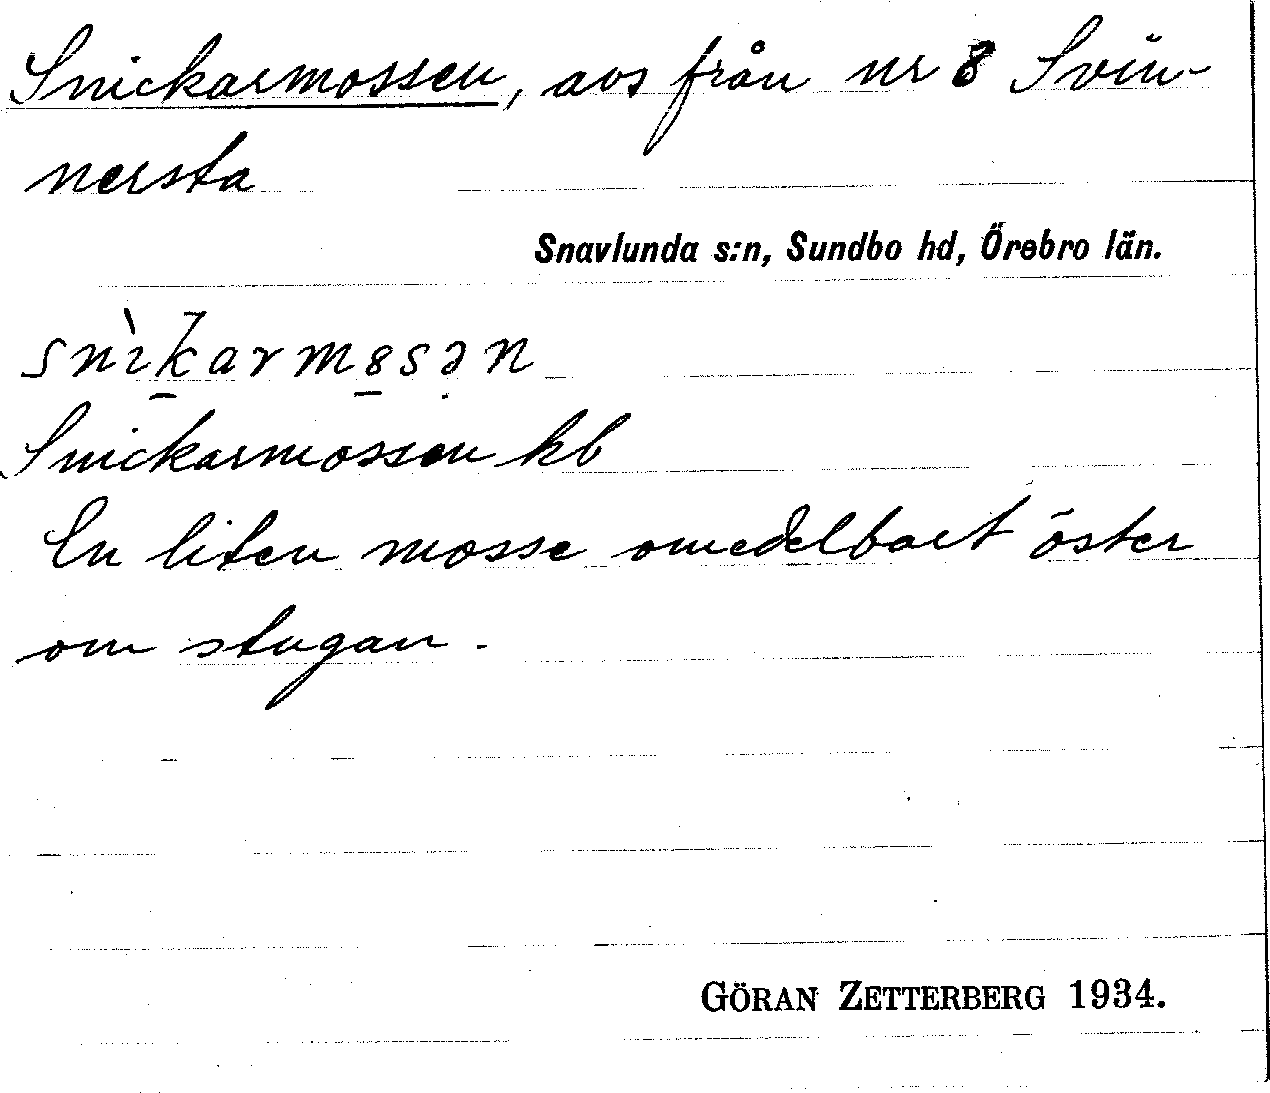 Snickarmossen, avs från nr 8 Svin-
nersta
Snavlunda s:n, Sundbo hd, Örebro län.
snìkarm8sən
Snickarmossen kb
En liten mosse omedelbart öster
om stugan.
GÖRAN ZETTERBERG 1934.